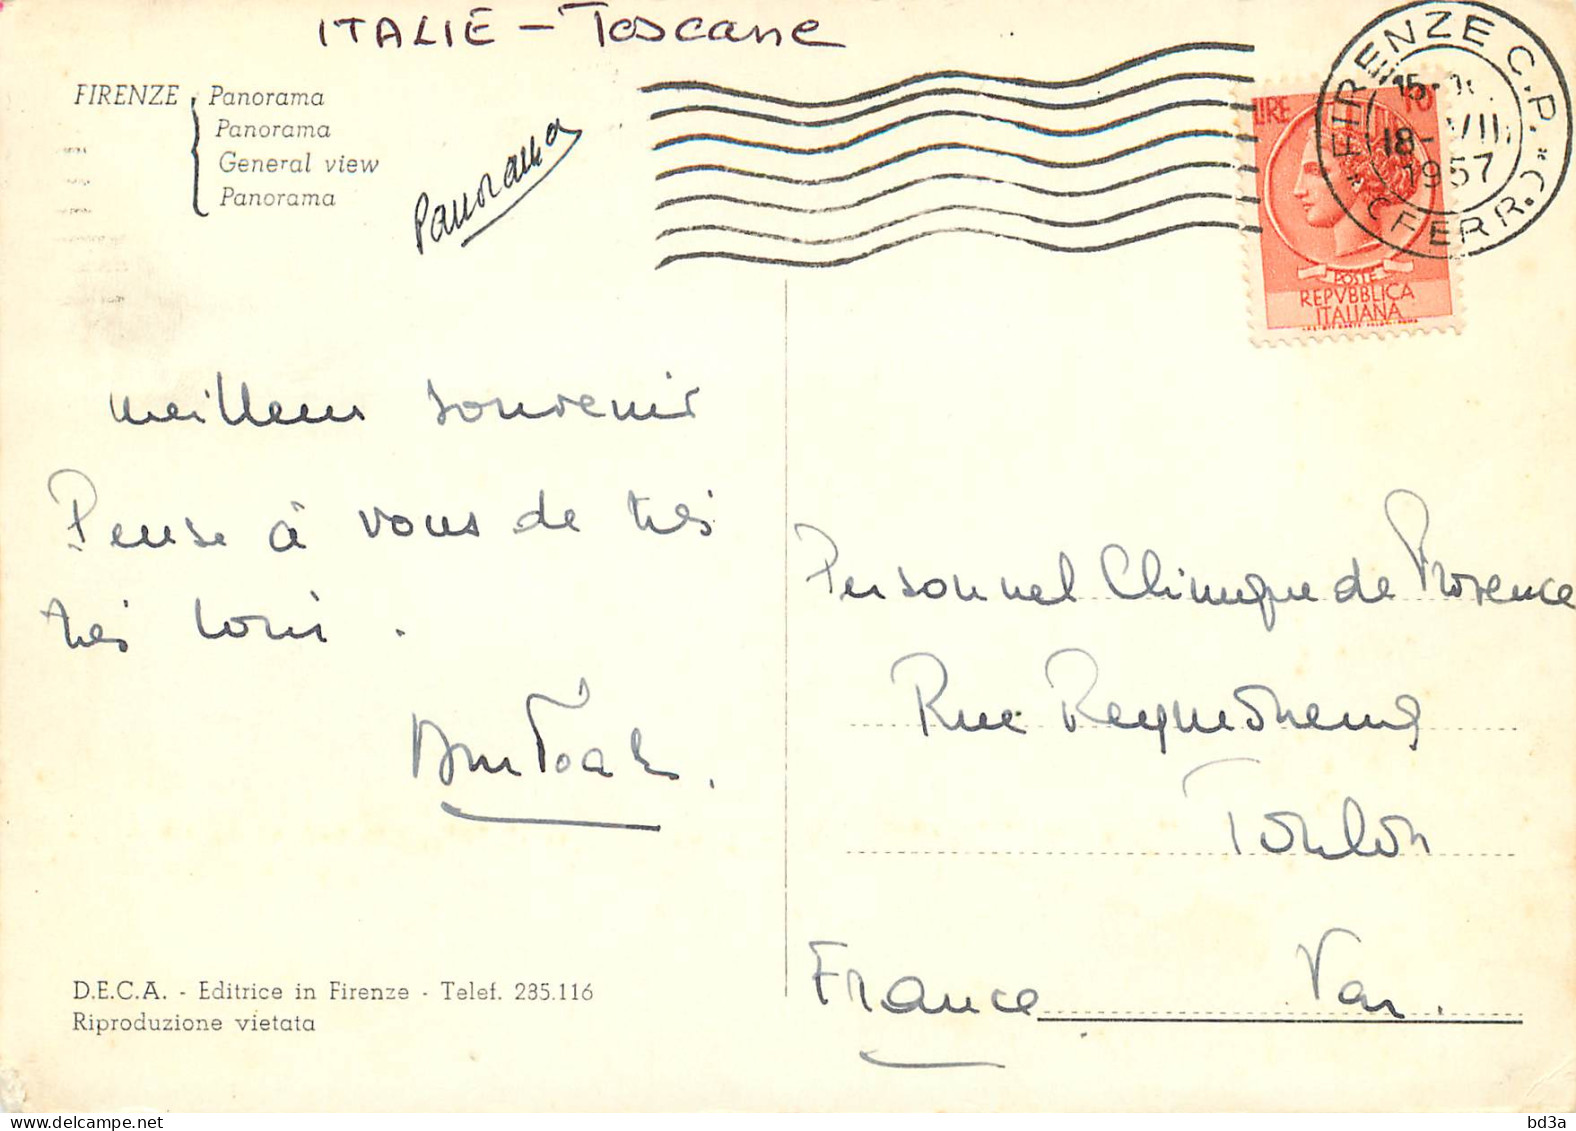 ITALIE - Toscane
FIRENZE Panorama
Panorama
General view
Panorama
Panorama
FIRENZE C.P. * C. FERR. *
15-
18- VII
1957
LIRE 10
POSTE
REPVBBLICA
ITALIANA
meilleur souvenir
Pense à vous de très
très loin.
Personnel Clinique de Provence
Rue
Toulon
France Var.
D.E.C.A. - Editrice in Firenze - Telef. 285.116
Riproduzione vietata
bd3a